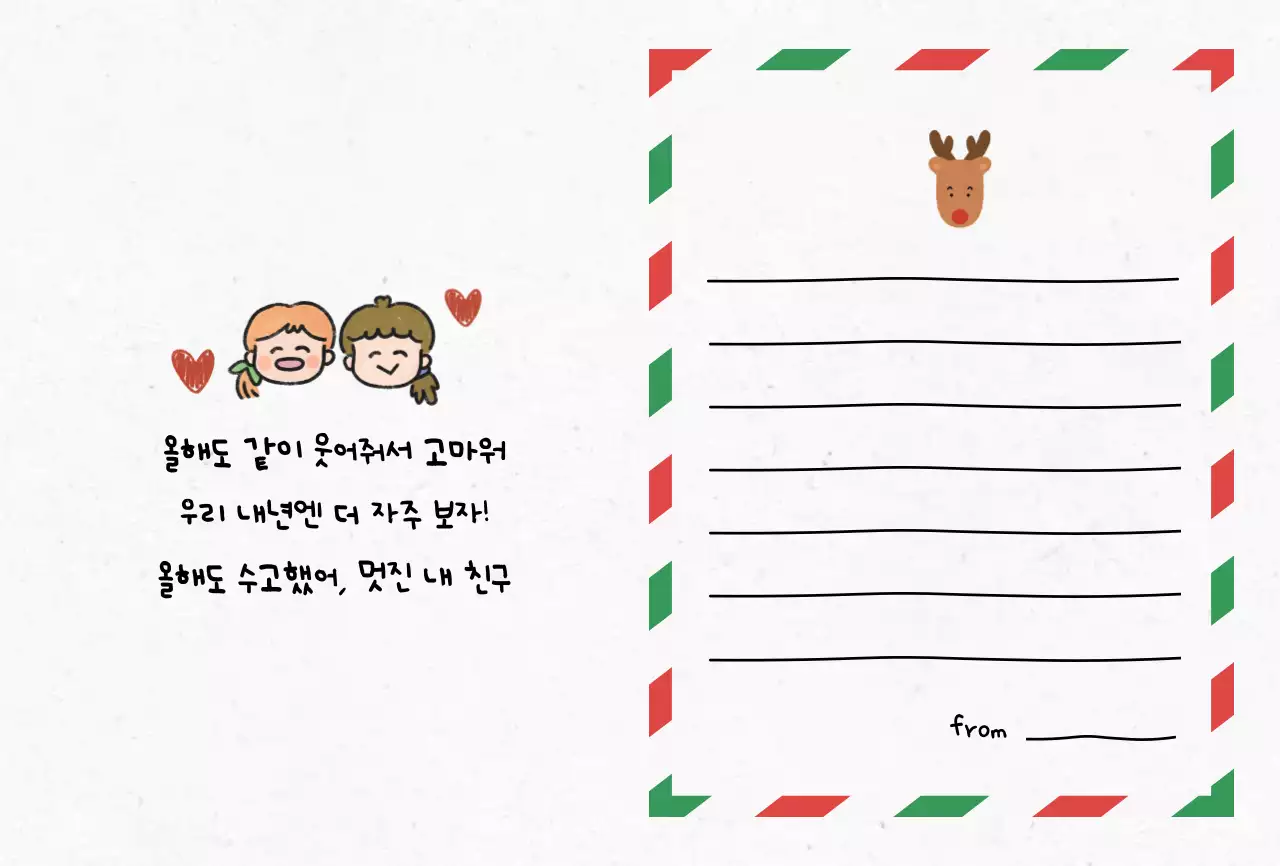 올해도 같이 웃어줘서 고마워
우리 내년엔 더 자주 보자!
올해도 수고했어, 멋진 내 친구
from